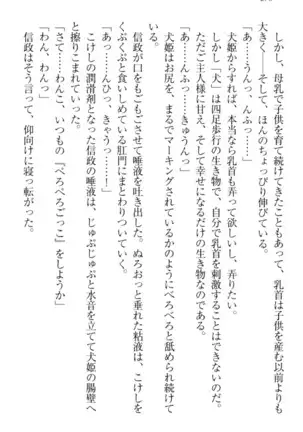 しかし、母乳で子供を育て続けてきたこともあって、乳首は子供を産む以前よりも
大きく――そして、ほんのちょっぴり伸びている。
「あっ……うんっ、んふっ……」
犬姫からすれば、本当なら乳首をいじって欲しいし、弄りたい。
しかし「犬」は四足歩行の生き物で、自分で乳首を刺激することはできない。
ただご主人様に甘え、そして幸せになるだけの生き物なのだ。
「あっ……んっ……きゅうんっ」
犬姫はお尻を、まるでマーキングされているかのようにべろべろと舐められ続けて
信政が口をもごもごさせて唾液を吐き出した。ぬろおっと垂れた粘液は、こけしを
くぷくぷと食いしめている肛門にまとわりついていく。
「あっ……んひっ、きゃうっ……！
こけしの潤滑剤となった信政の唾液は、じゅぷじゅぷと水音を立てて犬姫の腸壁へ
と擦りこまれていった。
「さて……わんこ、いつもの『べろべろごっこ』をしようか」
「わんっ、わんっ」
信政はそう言って、仰向けに寝っ転がった。